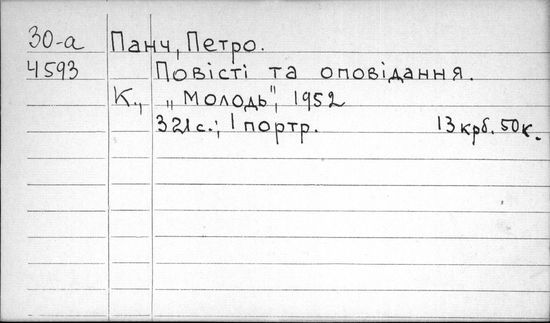 30-а Панч, Петро.
4593 Повісті та оповідання.
К., „Молодь", 1952
321с.; 1 портр. 13 крб. 50к.